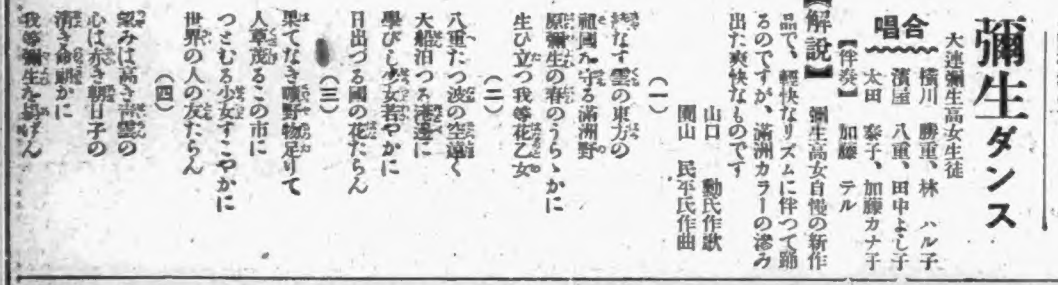 彌生ダンス
大連彌生高女生徒
合唱
横川 勝重、林 ハル子
濱屋 八重、田中よし子
太田 泰子、加藤カナ子
【伴奏】 加藤 テル
【解説】 彌生高女自慢の新作
品で、輕快なリズムに伴つて踊
るのですが、滿洲カラーの滲み
出た爽快なものです
山口 勳氏作歌
園山 民平氏作曲
(一)
なす雲の東方の
祖國を守る滿洲野
原彌生の春のうらゝかに
生ひ立つ我等花乙女
(二)
八重たつ波の空遠く
大船泊つる港邊に
學びし少女若やかに
日出づる國の花たらん
(三)
果てなき曠野物足りて
人草茂るこの市に
つとむる少女すこやかに
世界の人の友たらん
(四)
望みは高き青雲の
心は赤き朝日子の
清き かに
我等彌生を